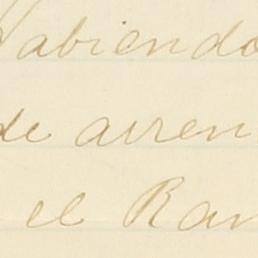 Habiendo
de arren
el Ran